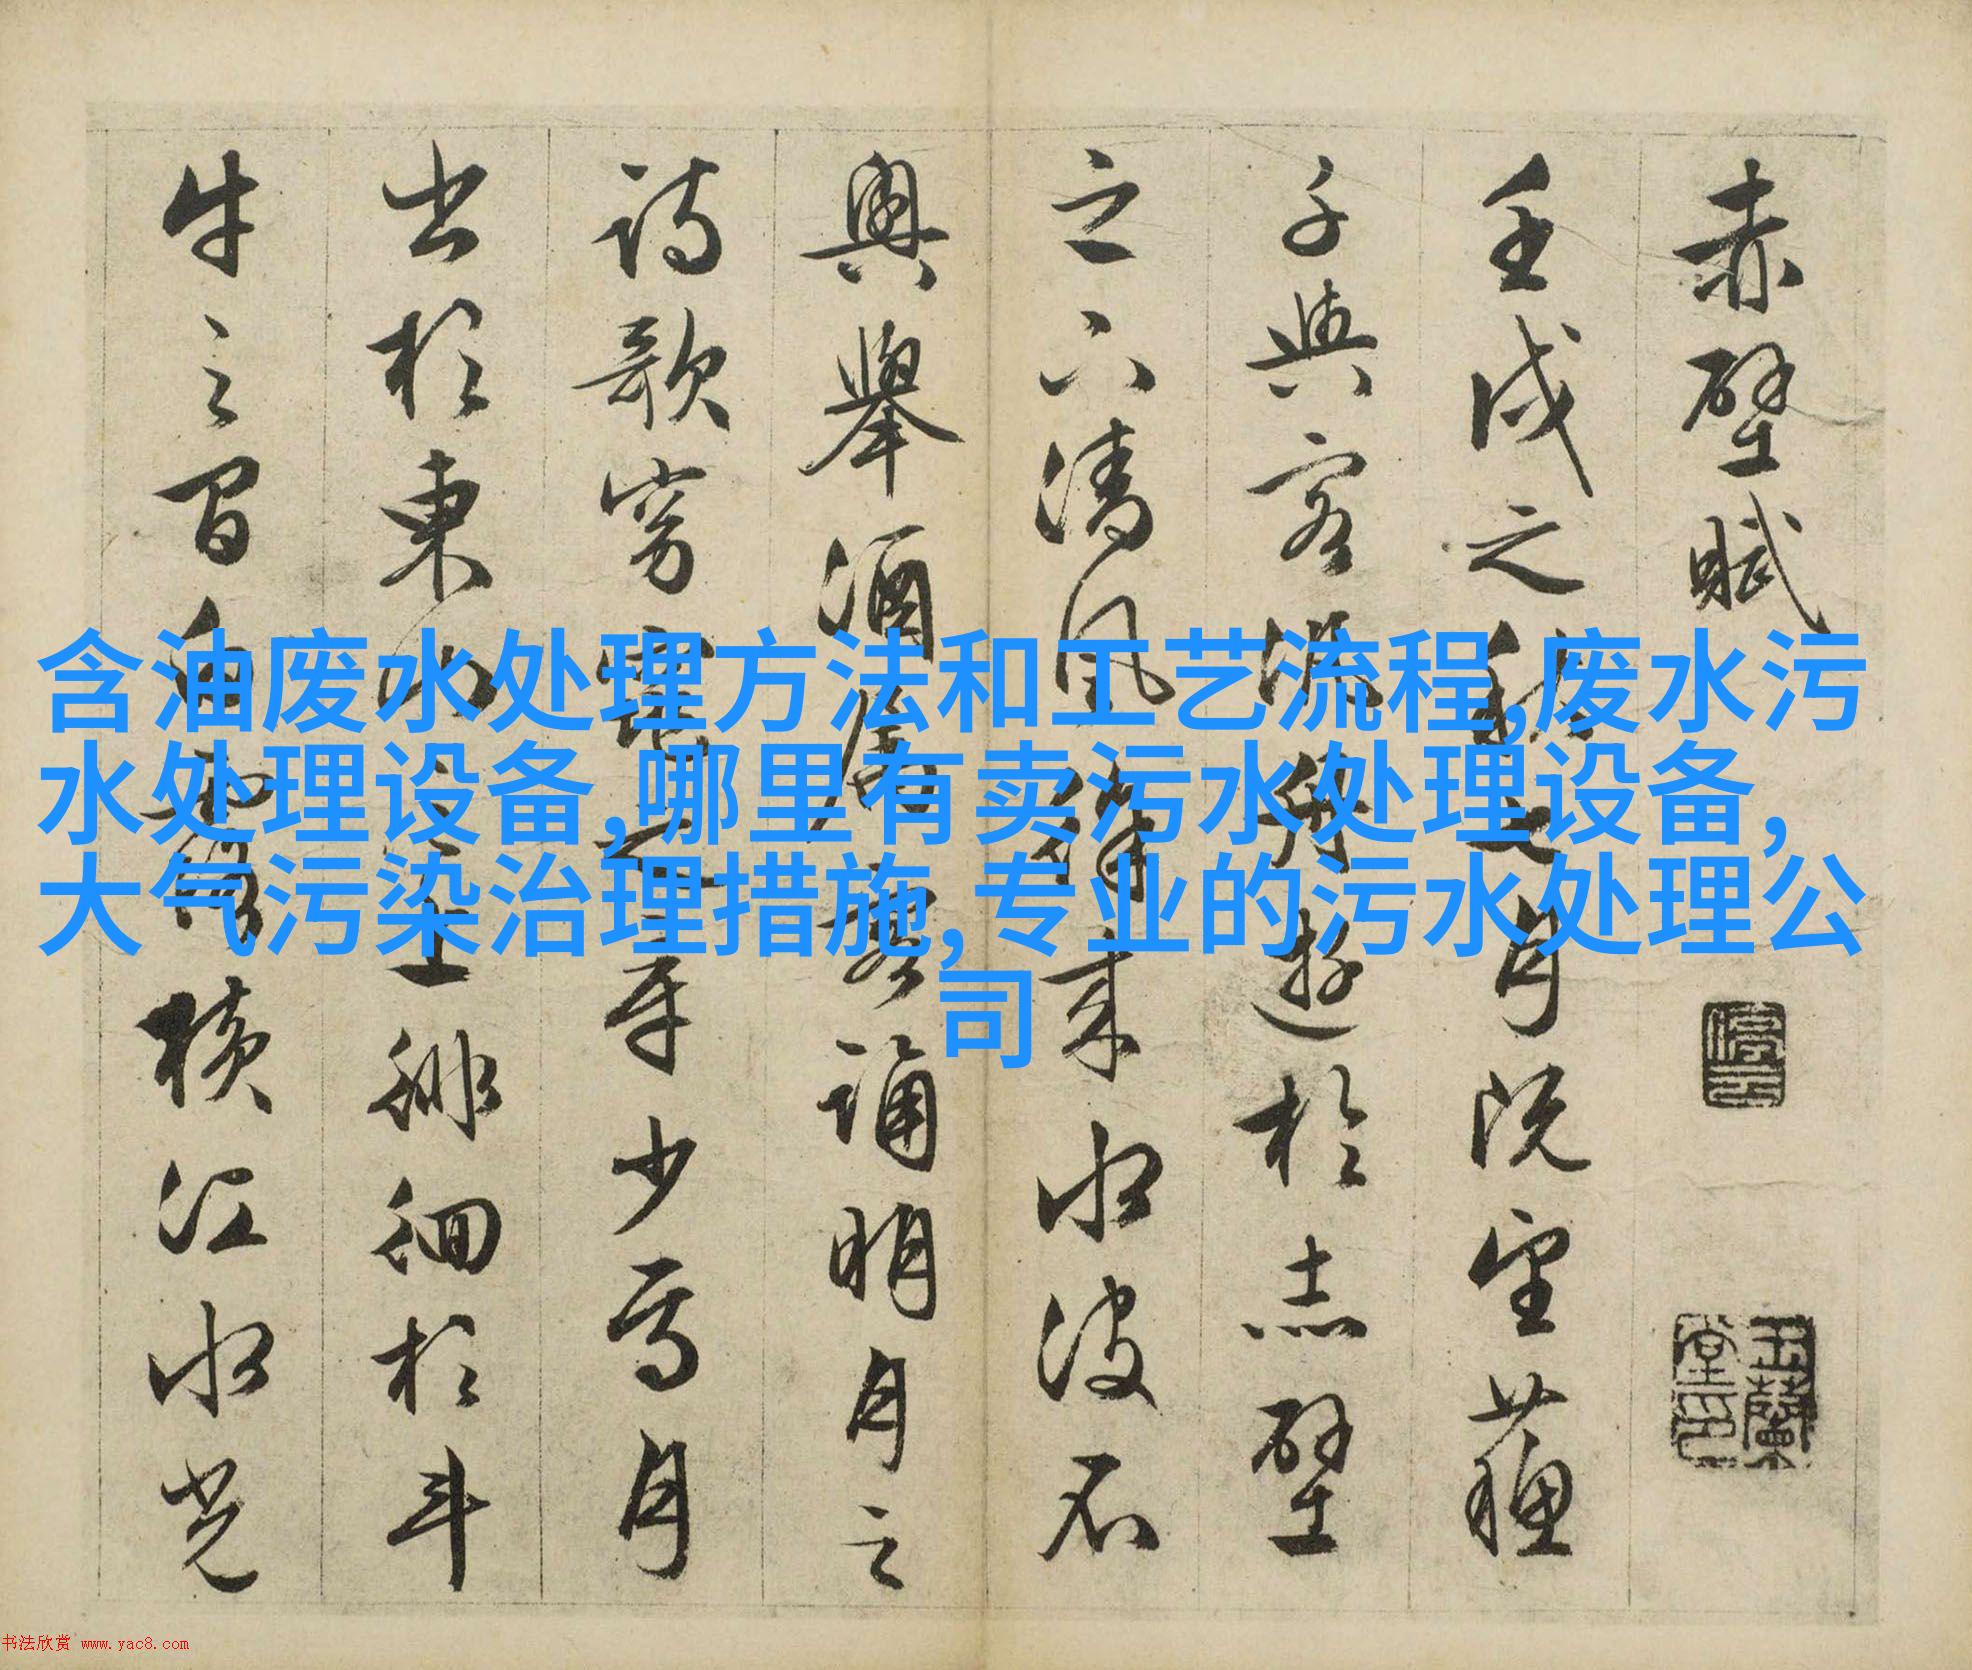 赤壁賦
壬戌之秋七月既望蘇
子與客泛舟遊於赤壁
之下清風徐來水波不
興舉酒屬客誦明月之
詩歌窈窕之章少焉月
出於東山之上徘徊於斗
牛之間白露橫江水光
含油废水处理方法和工艺流程,废水污
水处理设备,哪里有卖污水处理设备,
大气污染治理措施,专业的污水处理公
司
书法欣赏 www.yac8.com